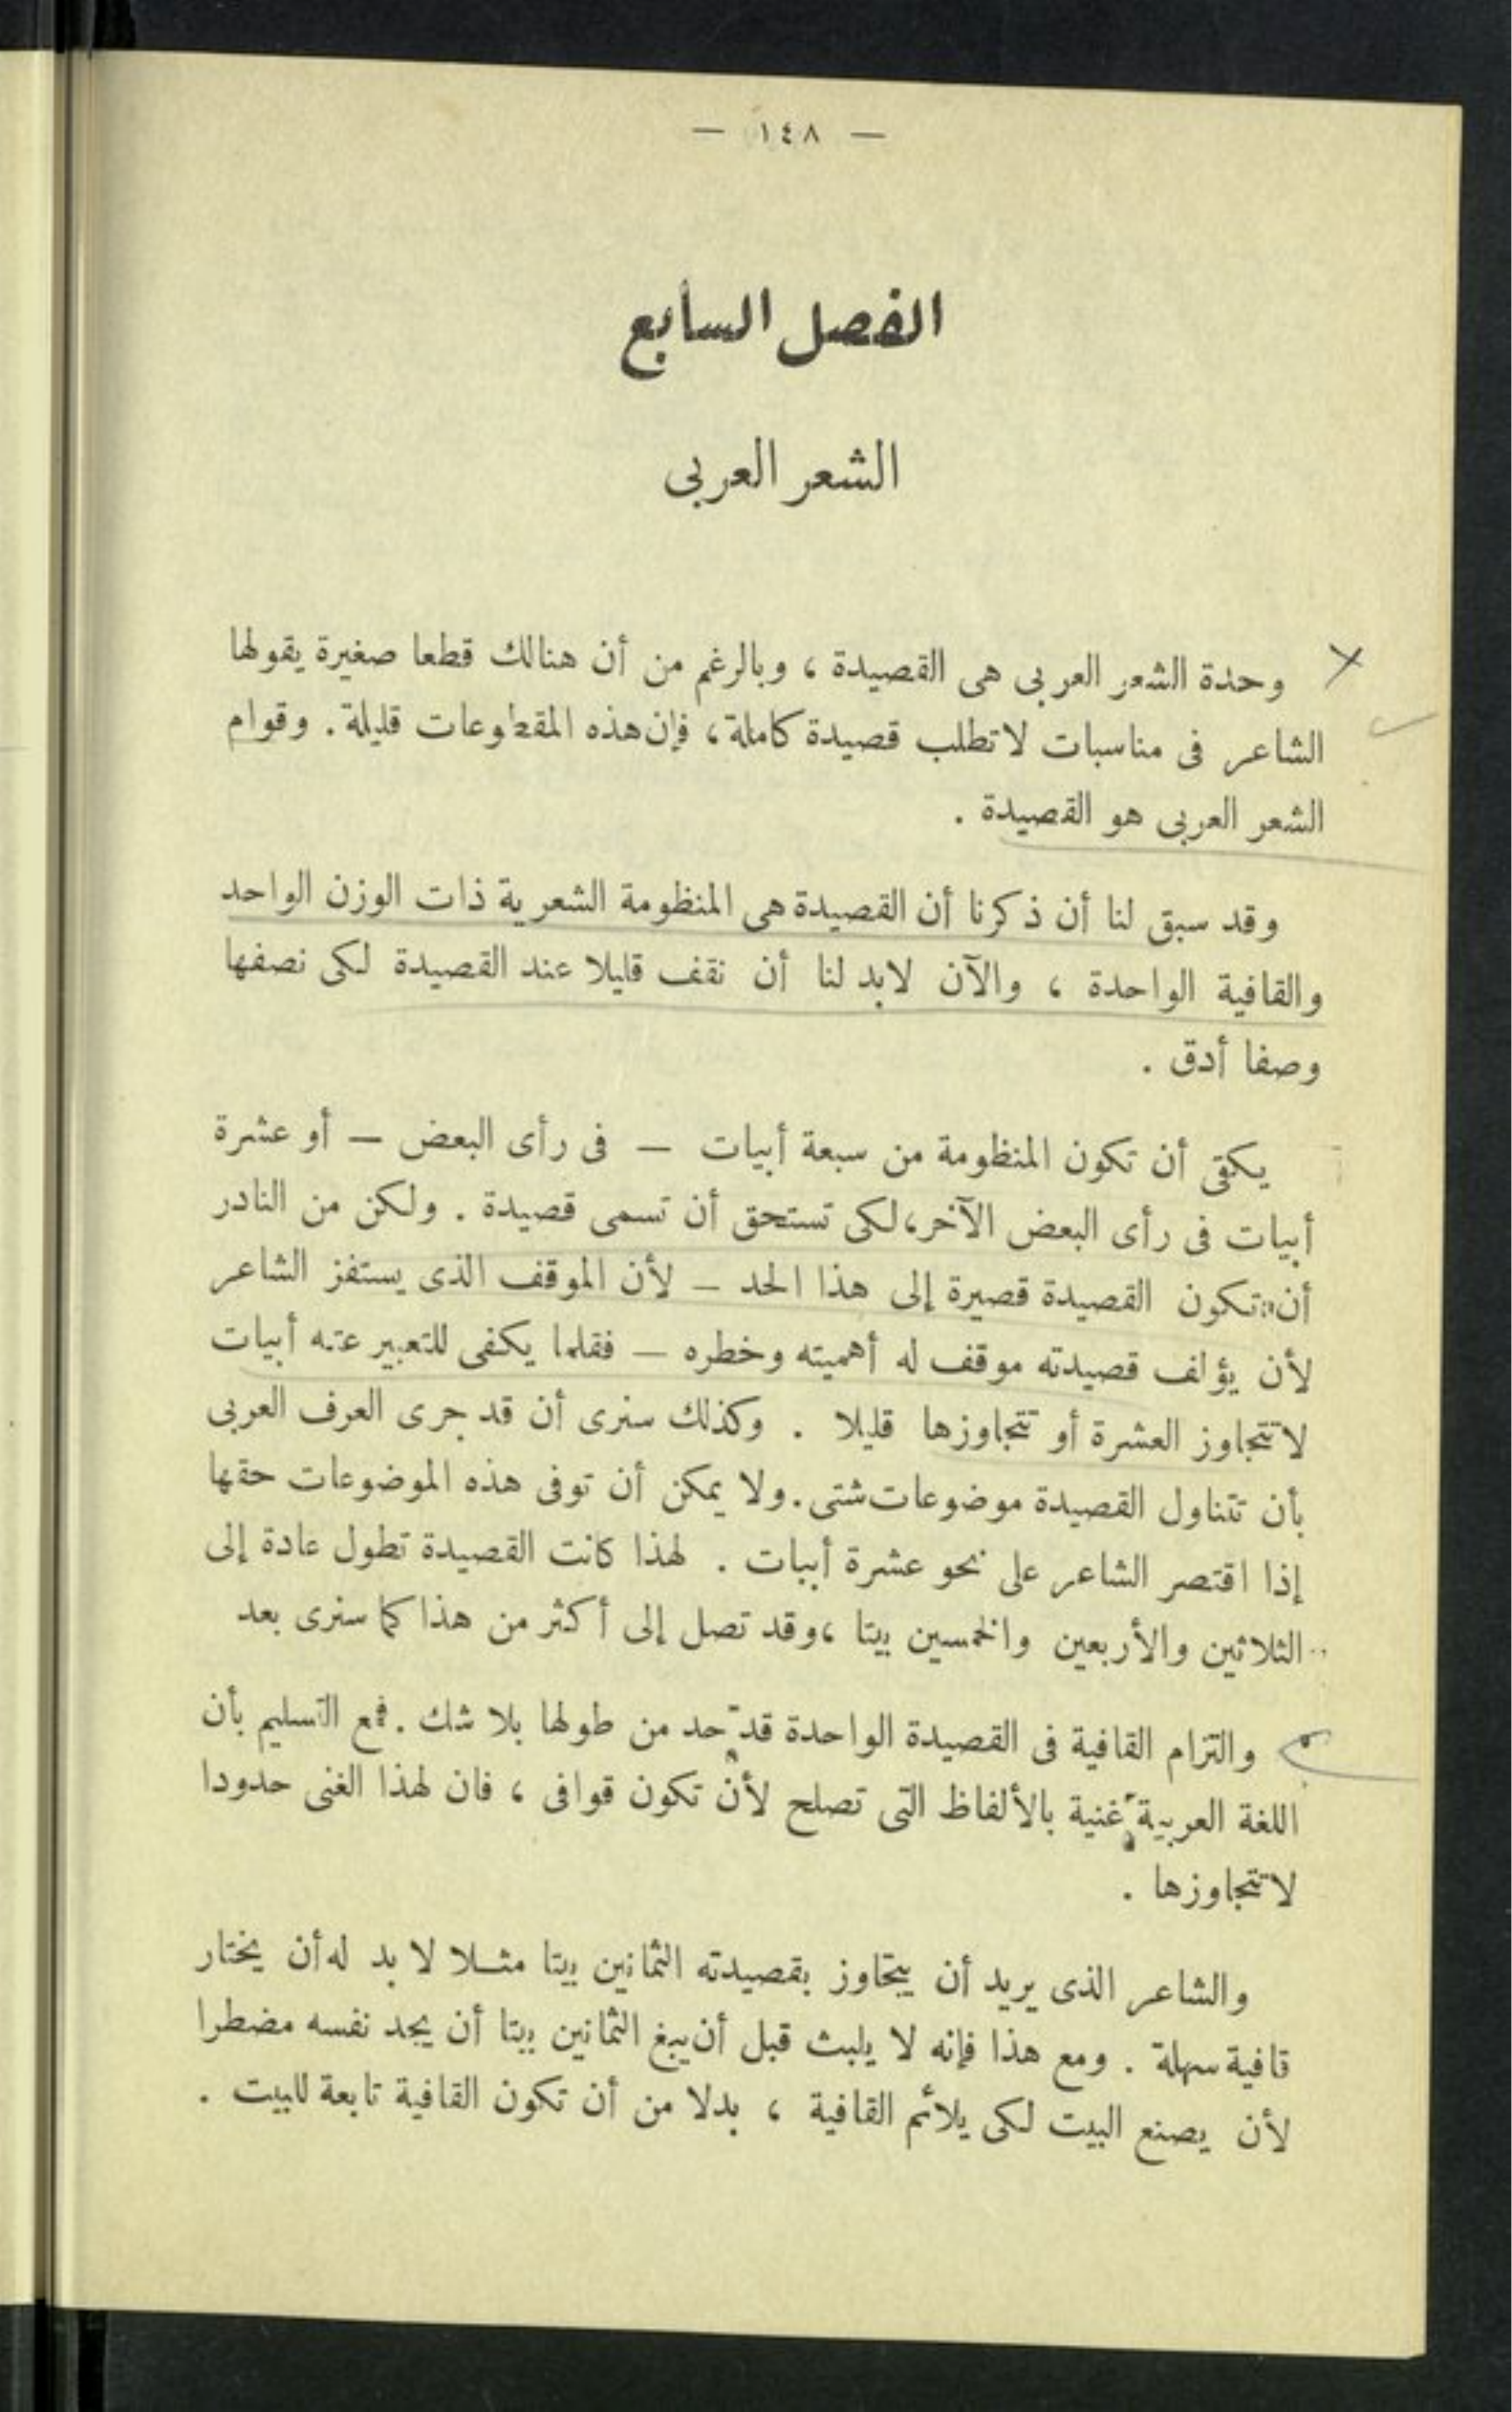 — ١٤٨ —
الفصل السابع
الشعر العربى
وحدة الشعر العربى هى القصيدة ، وبالرغم من أن هنالك قطعا صغيرة يقولها
الشاعر فى مناسبات لا تطلب قصيدة كاملة ، فإن هذه المقطوعات قليلة . وقوام
الشعر العربى هو القصيدة .
وقد سبق لنا أن ذكرنا أن القصيدة هى المنظومة الشعرية ذات الوزن الواحد
والقافية الواحدة ، والآن لابد لنا أن نقف قليلا عند القصيدة لكى نصفها
وصفا أدق .
يكفى أن تكون المنظومة من سبعة أبيات — فى رأى البعض — أو عشرة
أبيات فى رأى البعض الآخر ، لكى تستحق أن تسمى قصيدة . ولكن من النادر
أن تكون القصيدة قصيرة إلى هذا الحد — لأن الموقف الذى يستفز الشاعر
لأن يؤلف قصيدته موقف له أهميته وخطره — فقلما يكفى للتعبير عنه أبيات
لا تتجاوز العشرة أو تتجاوزها قليلا . وكذلك سنرى أن قد جرى العرف العربى
بأن تتناول القصيدة موضوعات شتى . ولا يمكن أن توفى هذه الموضوعات حقها
إذا اقتصر الشاعر على نحو عشرة أبيات . لهذا كانت القصيدة تطول عادة إلى
الثلاثين والأربعين والخمسين بيتا ، وقد تصل إلى أكثر من هذا كما سنرى بعد
والتزام القافية فى القصيدة الواحدة قد حد من طولها بلا شك . فمع التسليم بأن
اللغة العربية غنية بالألفاظ التى تصلح لأن تكون قوافى ، فان لهذا الغنى حدودا
لا تتجاوزها .
والشاعر الذى يريد أن يتجاوز بقصيدته الثمانين بيتا مثلا لا بد له أن يختار
قافية سهلة . ومع هذا فإنه لا يلبث قبل أن يبغ الثمانين بيتا أن يجد نفسه مضطرا
لأن يصنع البيت لكى يلائم القافية ، بدلا من أن تكون القافية تابعة للبيت .